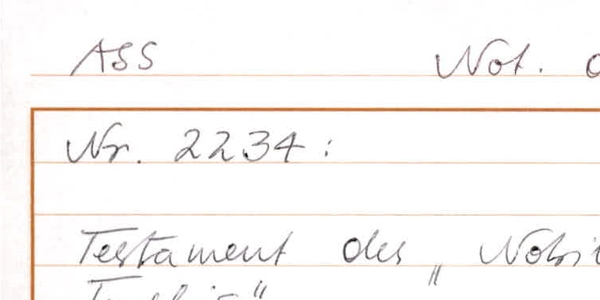 ASS Not.
Nr. 2234:
Testament des „